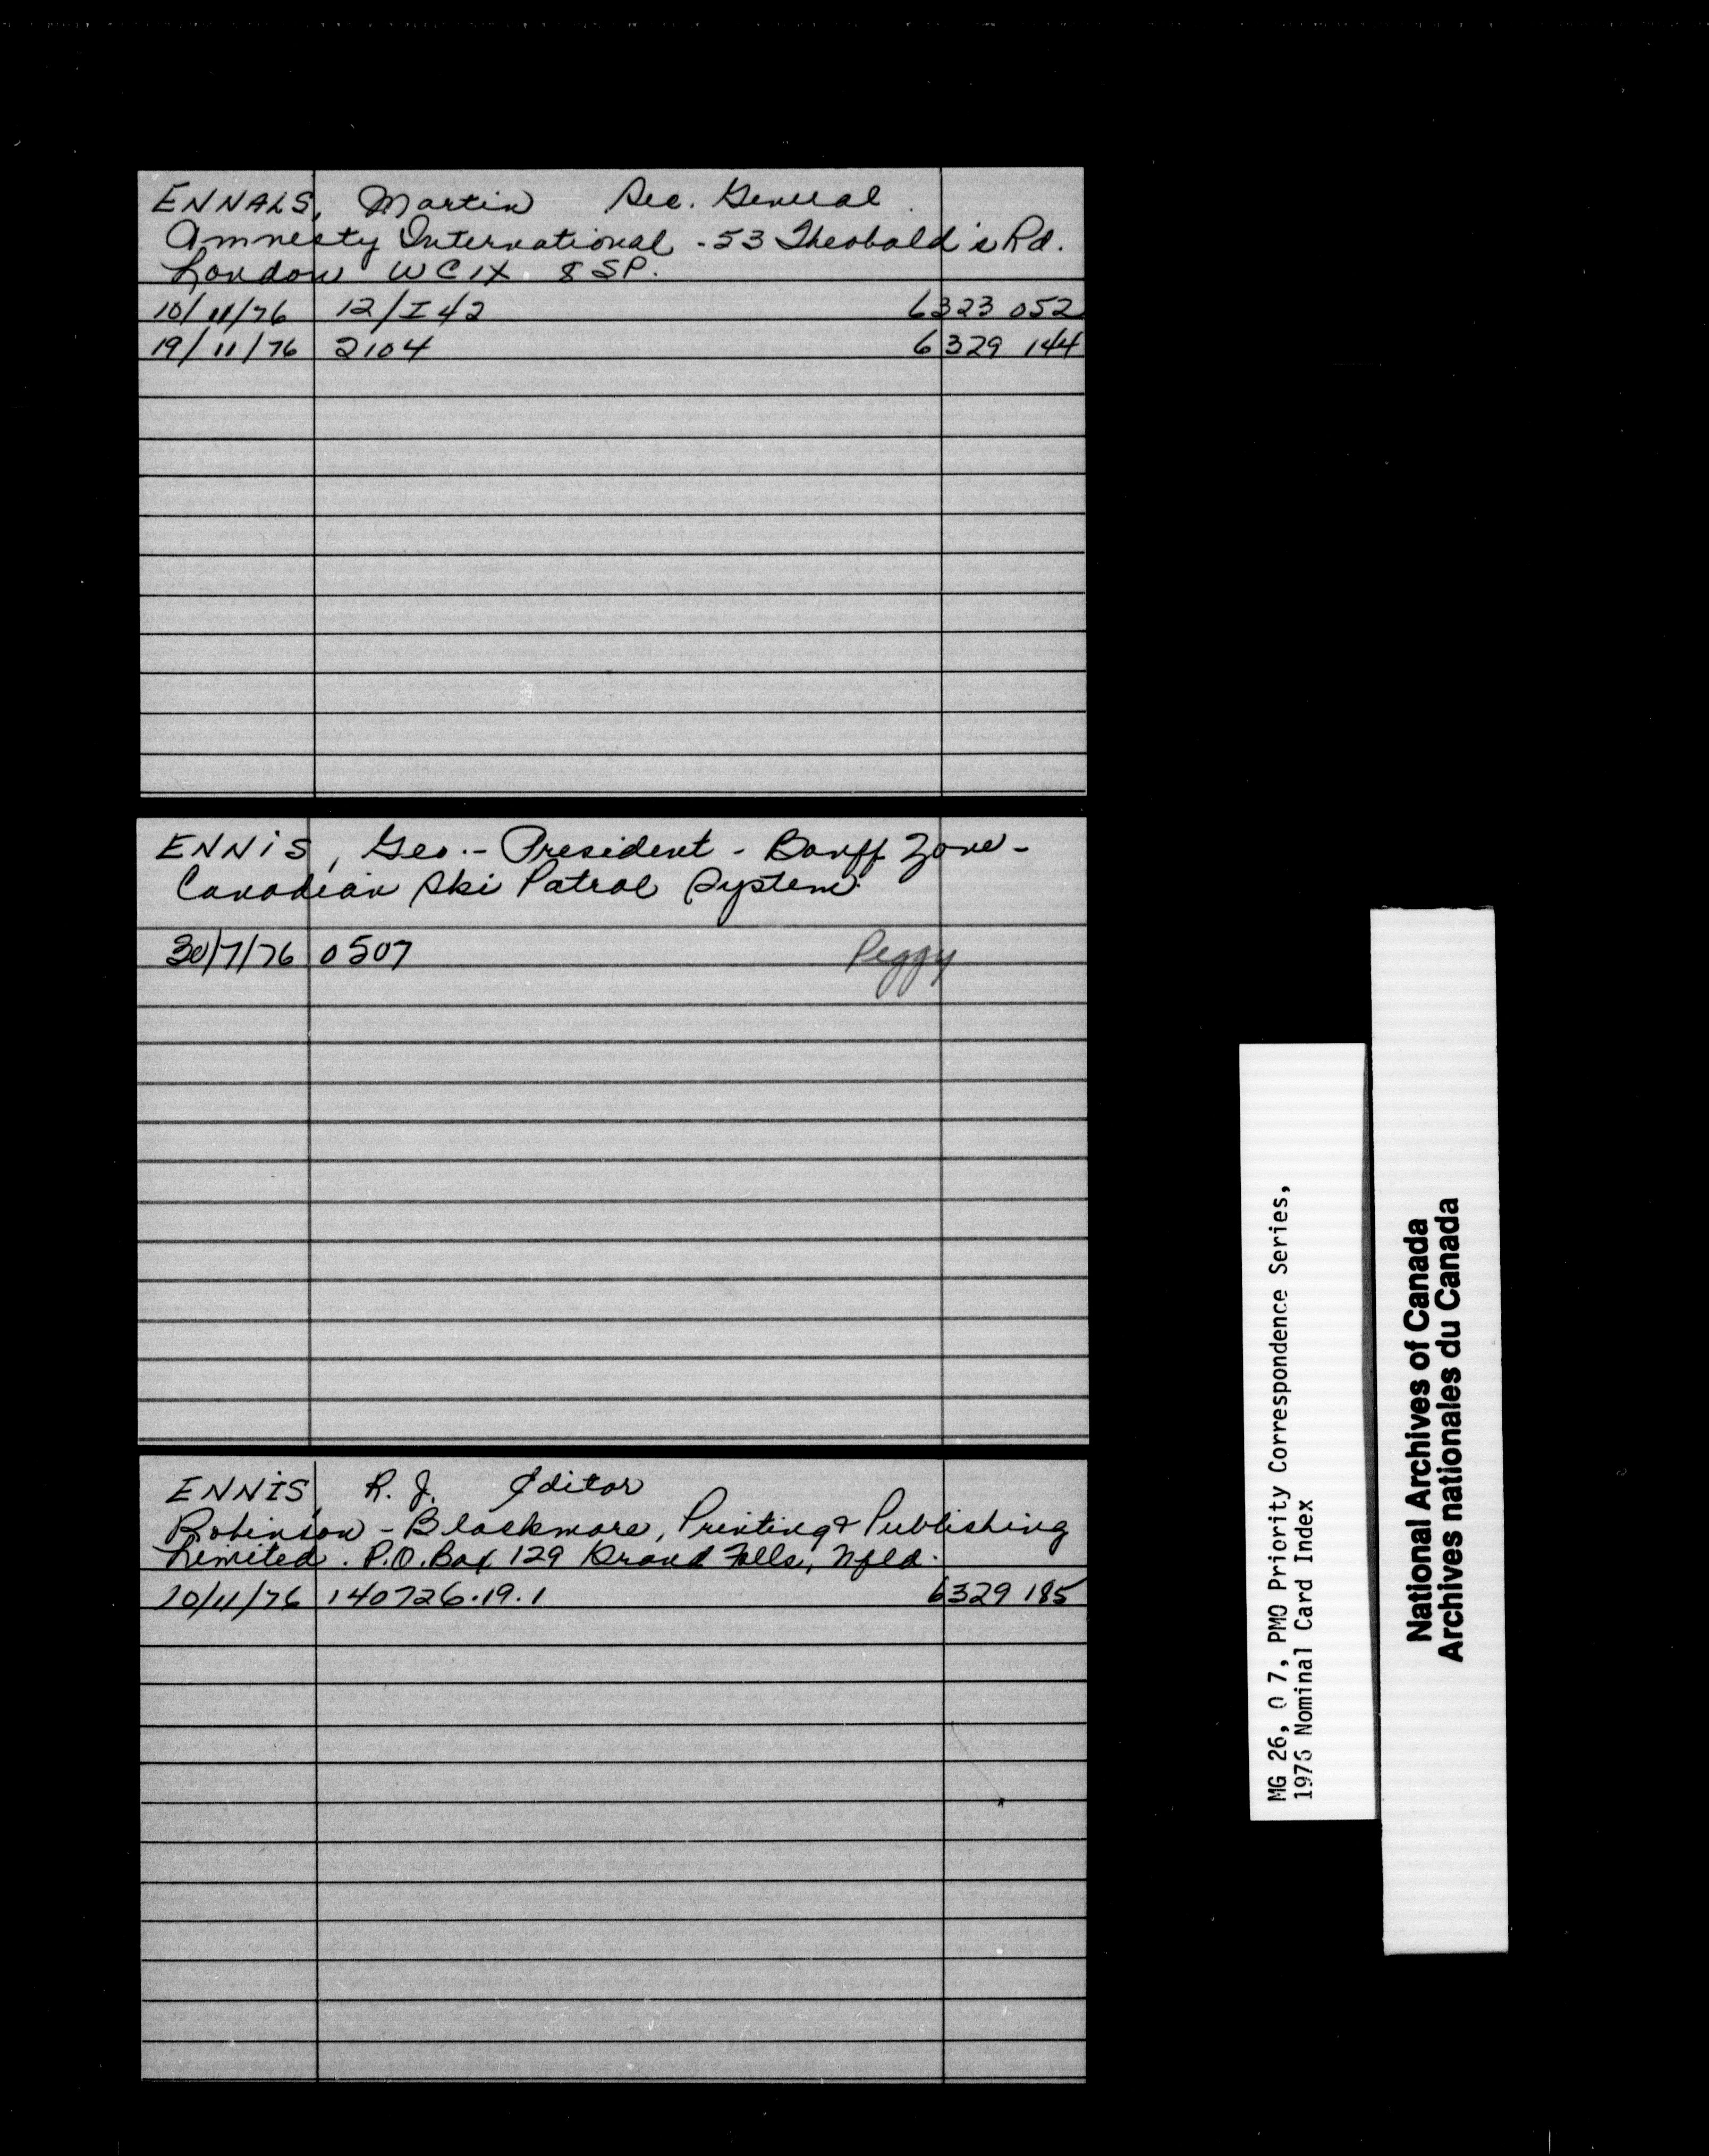 ENNALS, Martin Sec. General
Amnesty International - 53 Theobald's Rd.
London WC1X 8SP.
10/11/76 12/I42 6323 052
19/11/76 2104 6329 144
ENNIS, Geo. - President - Banff Zone -
Canadian Ski Patrol System
30/7/76 0507 Peggy
ENNIS, R. J. Editor
Robinson - Blackmore, Printing & Publishing
Limited. P.O. Box 129 Grand Falls, Nfld.
20/11/76 140726.19.1 6329 185
MG 26, O 7, PMO Priority Correspondence Series,
1976 Nominal Card Index
National Archives of Canada
Archives nationales du Canada